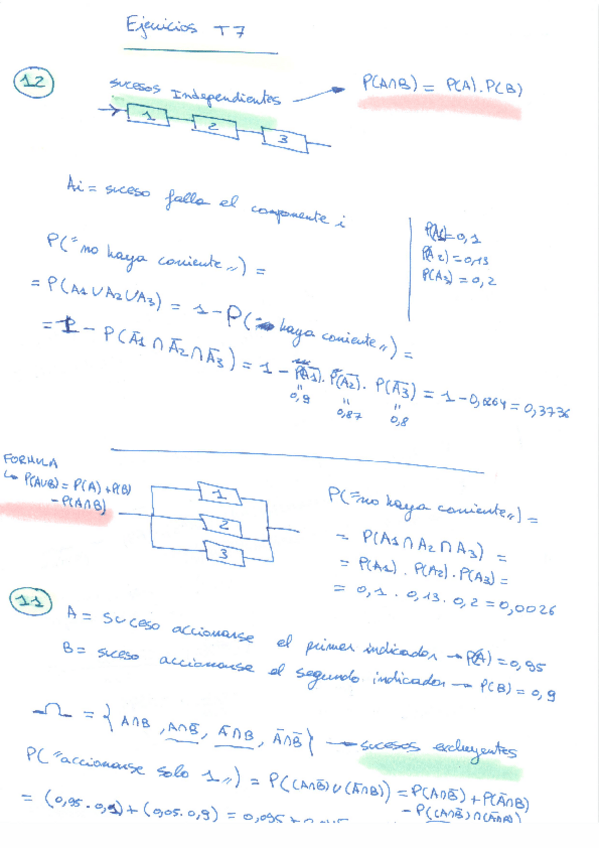 Ejercicios T7
12
sucesos Independientes → P(A∩B) = P(A).P(B)
1 2 3
Ai = suceso falla el componente i
P(A1)=0,1
P(A2)=0,13
P(A3)=0,2
P("no haya corriente") =
= P(A1∪A2∪A3) = 1-P("haya corriente") =
= 1 - P(Ā1 ∩ Ā2 ∩ Ā3) = 1 - P(Ā1). P(Ā2). P(Ā3) = 1-0,6264 = 0,3736
0,9 0,87 0,8
FORMULA
↳ P(A∪B) = P(A)+P(B)
-P(A∩B)
1
2
3
P("no haya corriente") =
= P(A1∩A2∩A3) =
= P(A1). P(A2). P(A3) =
= 0,1 . 0,13. 0,2 = 0,0026
11
A = suceso accionarse el primer indicador → P(A) = 0,95
B = suceso accionarse el segundo indicador → P(B) = 0,9
Ω = {A∩B, A∩B̄, Ā∩B, Ā∩B̄} → sucesos excluyentes
P("accionarse solo 1") = P((A∩B̄)∪(Ā∩B)) = P(A∩B̄) + P(Ā∩B)
- P((A∩B̄)∩(Ā∩B))
= (0,95 . 0,1)+(0,05. 0,9) = 0,095+